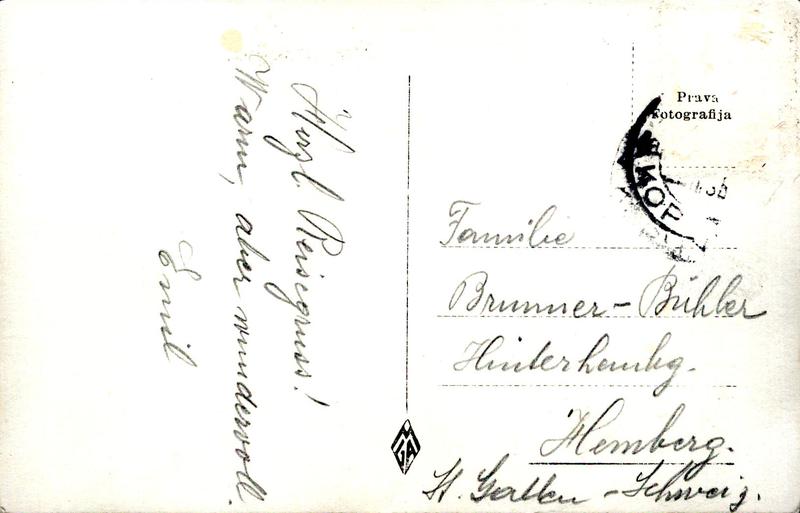 Herzl. Reisegruss!
Warm, aber wundervoll.
Emil
Prava
Fotografija
KOP
Familie
Brunner-Bühler
Hemberg.
St. Gallen - Schweiz.